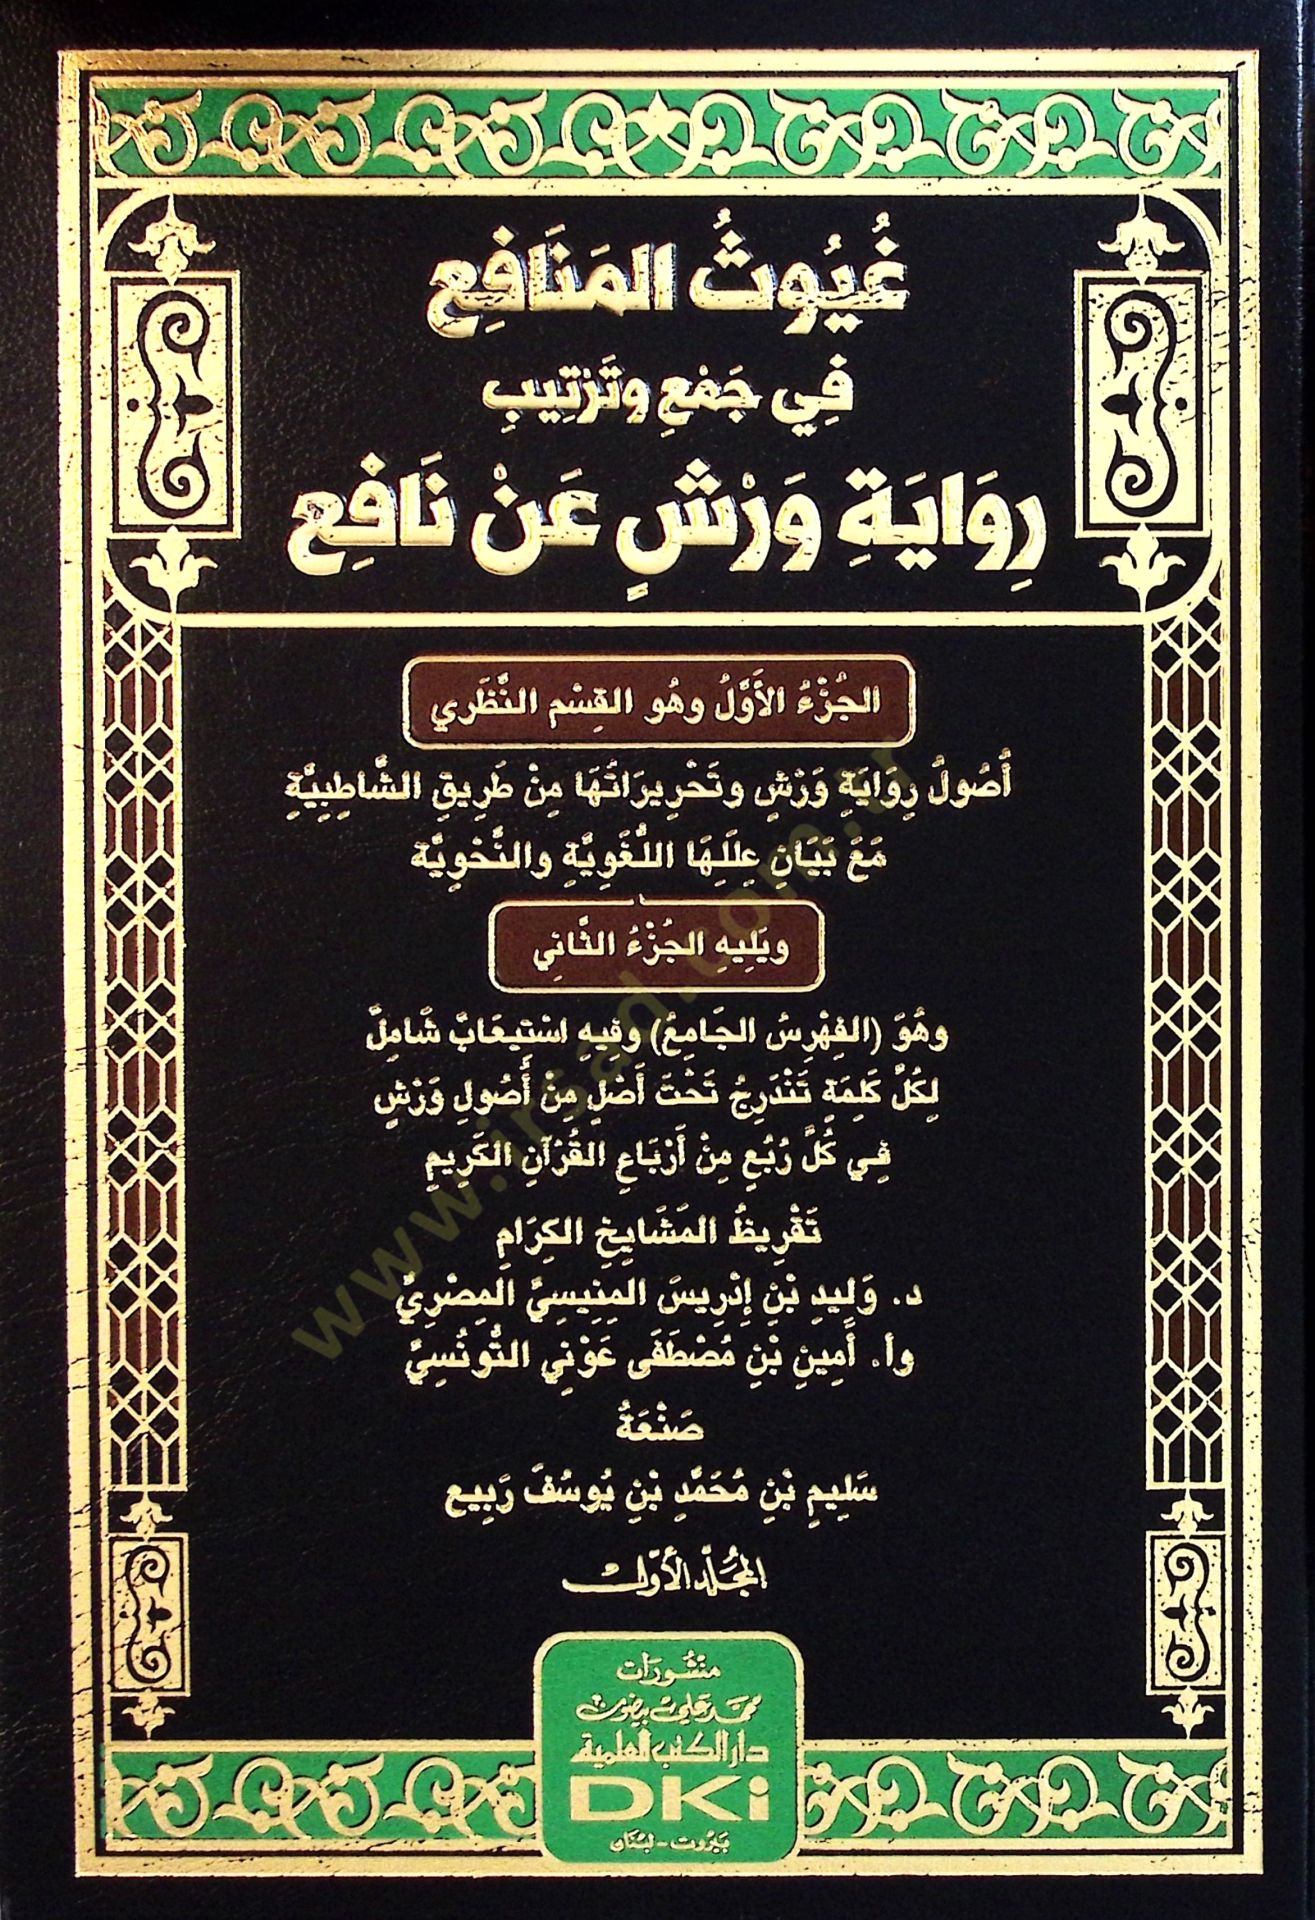 غُيُوثُ المَنَافِعِ
فِي جَمْعِ وتَرْتِيبِ
رِوَايَةِ وَرْشٍ عَنْ نَافِعٍ
الجُزْءُ الأَوَّلُ وهُو القِسْم النَّظَرِي
أُصُولُ رِوَايَةِ وَرْشٍ وتَحْرِيرَاتُهَا مِنْ طَرِيقِ الشَّاطِبِيَّةِ
مَعَ بَيَانِ عِلَلِهَا اللُّغَوِيَّةِ والنَّحْوِيَّة
ويَلِيهِ الجُزْءُ الثَّانِي
وهُوَ (الفِهْرِسُ الجَامِعُ) وفِيهِ اسْتِيعَابٌ شَامِلٌ
لِكُلِّ كَلِمَةٍ تَنْدَرِجُ تَحْتَ أَصْلٍ مِنْ أُصُولِ وَرْشٍ
فِي كُلِّ رُبُعٍ مِنْ أَرْبَاعِ القُرْآنِ الكَرِيمِ
تَقْرِيظُ المَشَايِخِ الكِرَامِ
د. وَلِيدِ بْنِ إِدْرِيسَ المِنِيسِيِّ المِصْرِيِّ
وأ. أَمِينِ بْنِ مُصْطَفَى عَوْنِي التُّونُسِيِّ
صَنْعَةُ
سَلِيمِ بْنِ مُحَمَّدِ بْنِ يُوسُفَ رَبِيع
المُجَلّد الأَوّل
منشورات
محمد علي بيضون
دار الكتب العلمية
DKi
بَيْرُوت - لبْنَان
www.irsad.com.tr